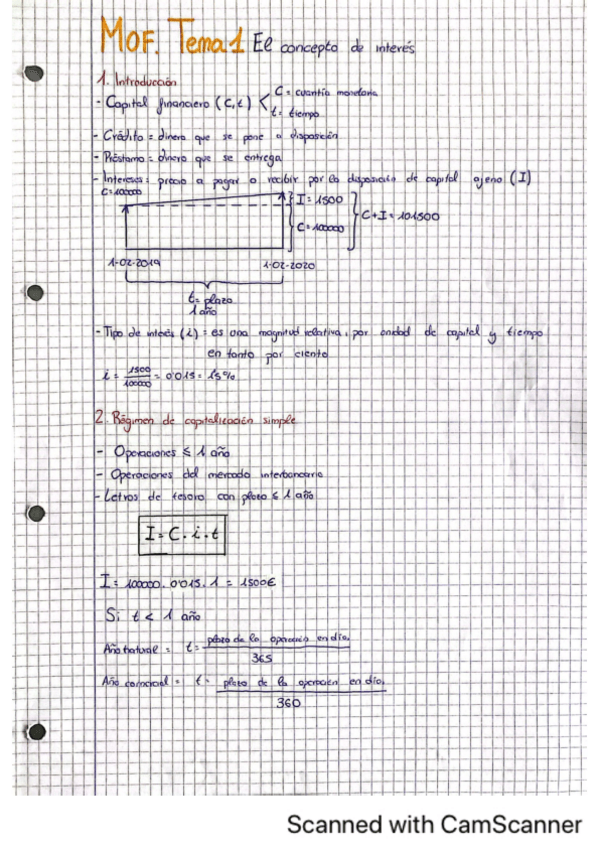 MOF. Tema 1 El concepto de interés
1. Introducción
- Capital financiero (C,t) < C = cuantía monetaria
t = tiempo
- Crédito = dinero que se pone a disposición
- Préstamo = dinero que se entrega
- Intereses = precio a pagar o recibir por la disposición de capital ajeno (I)
C=100000
I = 1500
C = 100000
C+I = 101500
1-02-2019
1-02-2020
t = plazo
1 año
- Tipo de interés (i) = es una magnitud relativa, por unidad de capital y tiempo
en tanto por ciento
i = 1500/100000 = 0'015 = 1'5%
2. Régimen de capitalización simple
- Operaciones ≤ 1 año
- Operaciones del mercado interbancario
- Letras de tesoro con plazo ≤ 1 año
I = C . i . t
I = 100000 . 0'015 . 1 = 1500€
Si t < 1 año
Año natural = t = plazo de la operación en día.
365
Año comercial = t = plazo de la operación en día.
360
Scanned with CamScanner